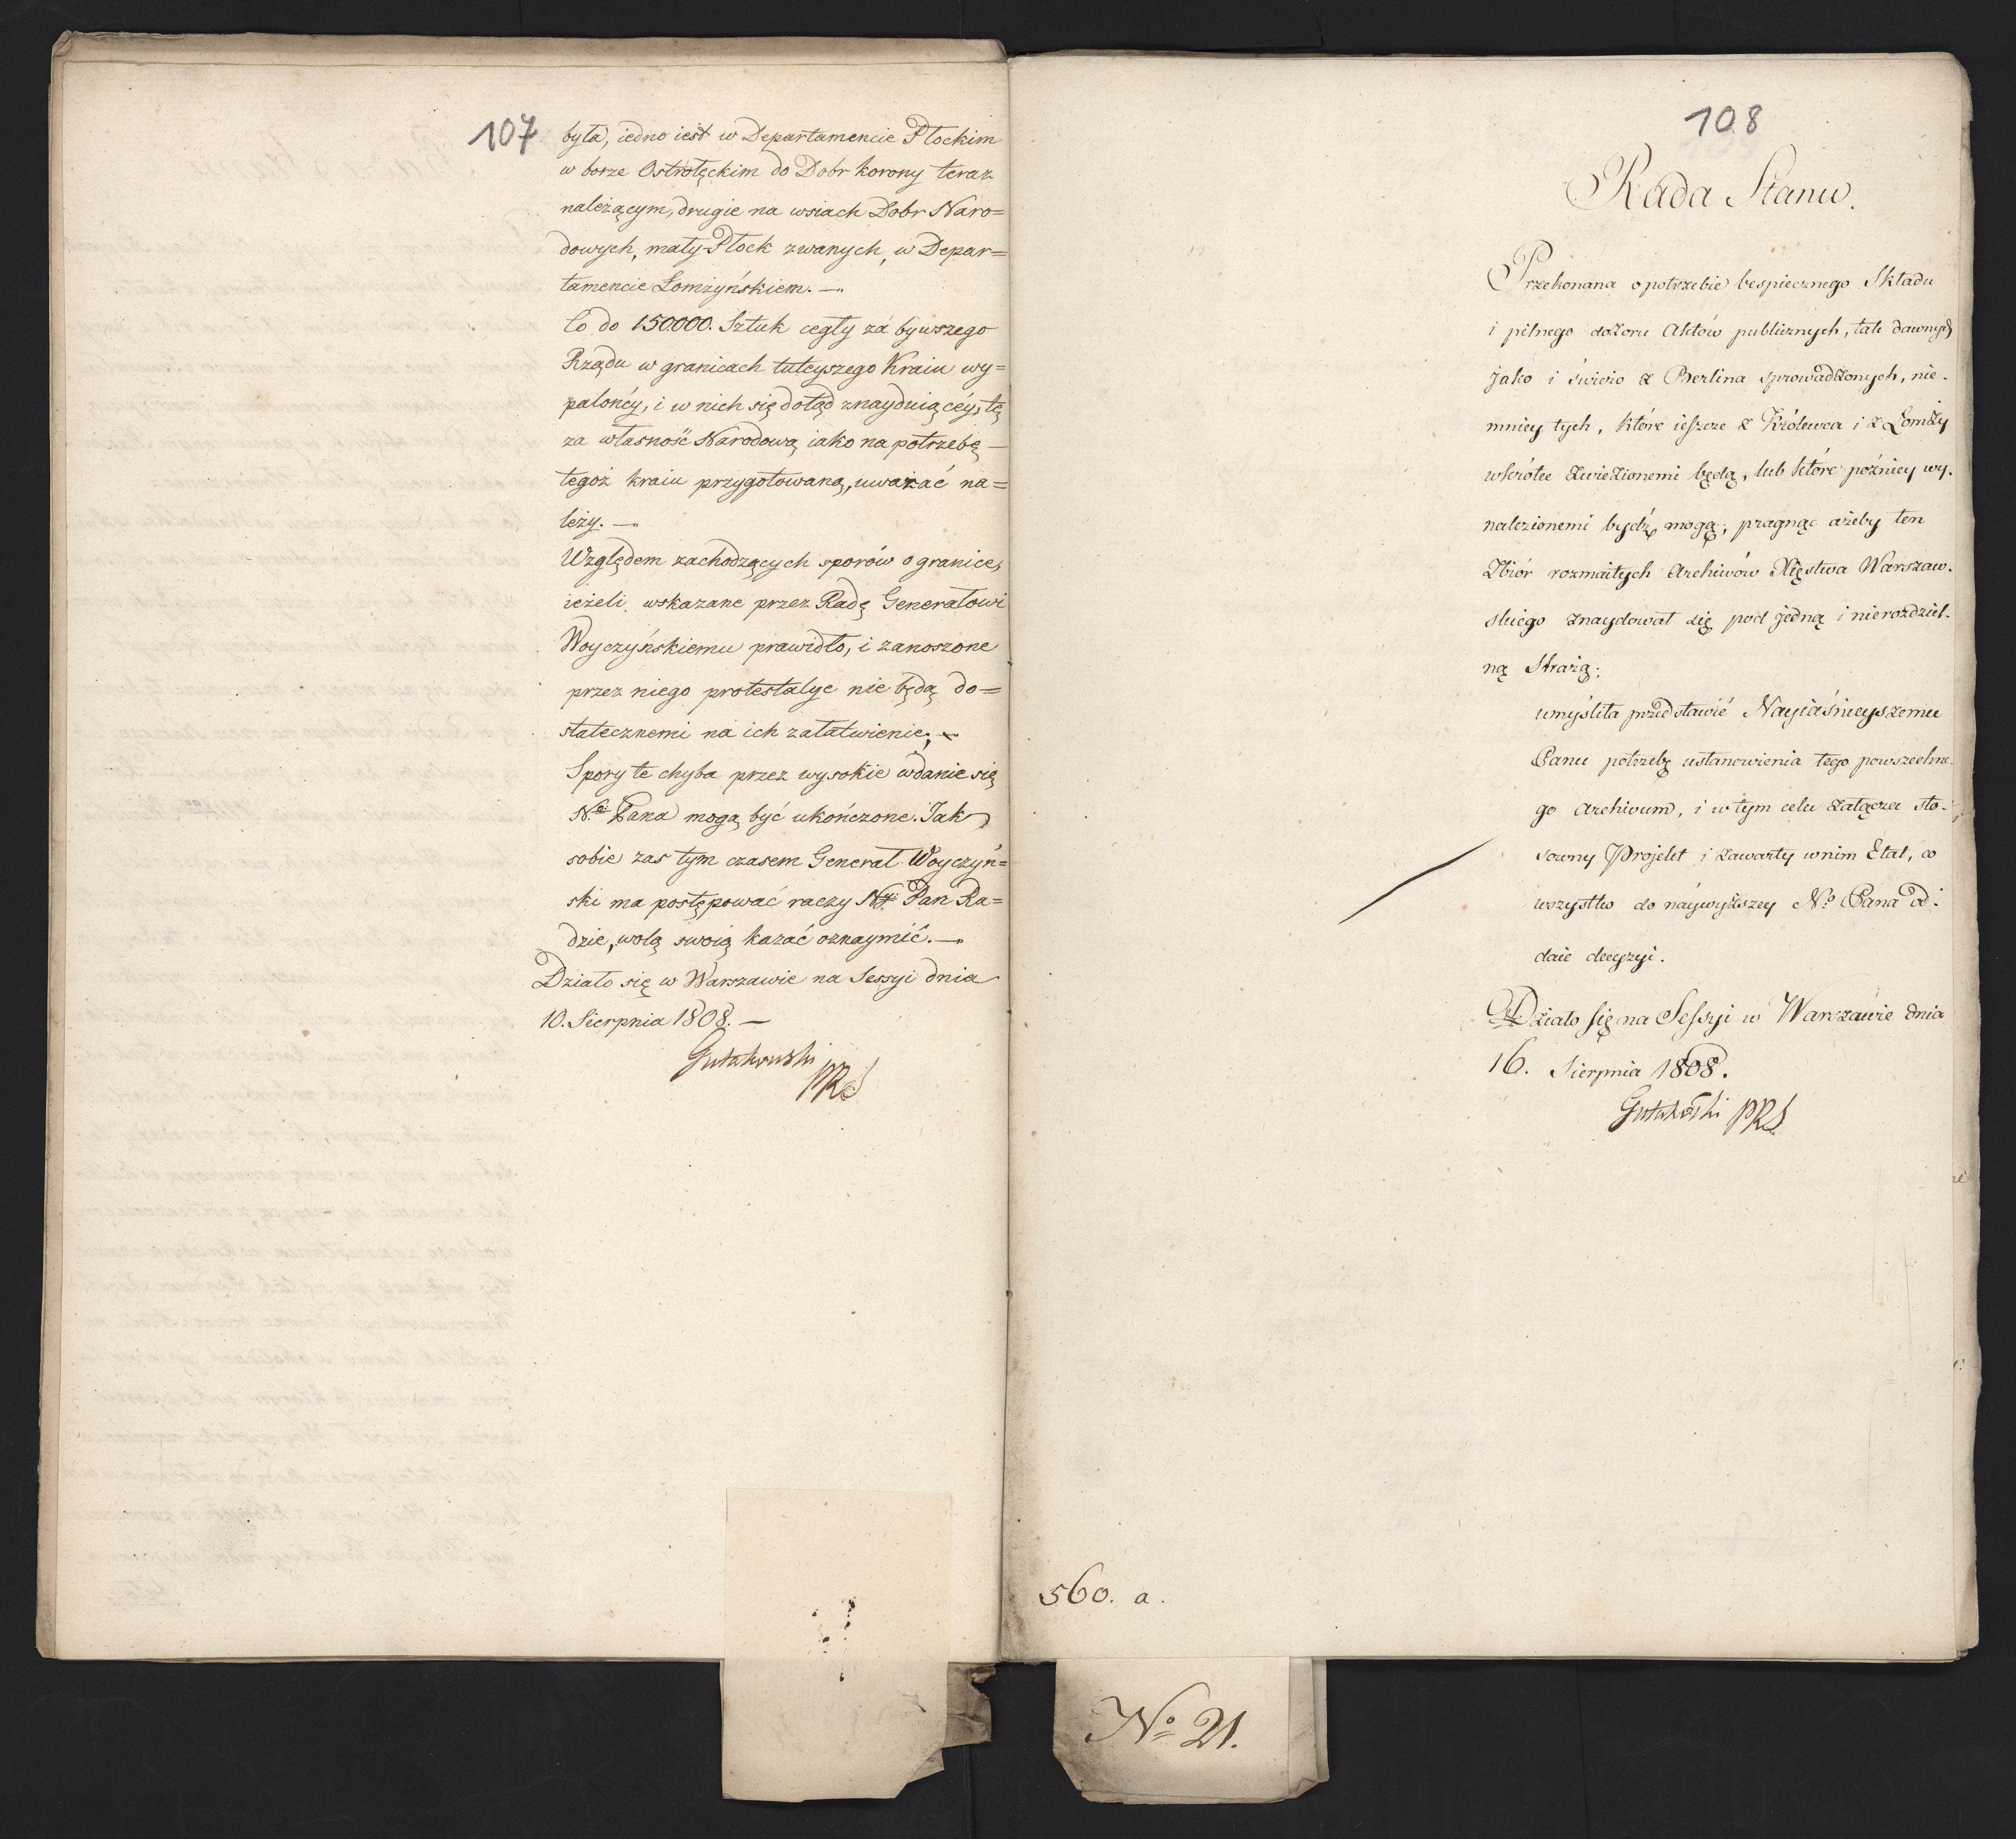 107
była, iedno iest w Departamencie Płockim
w borze Ostrołęckim do Dobr korony teraz
należącym, drugie na wsiach Dobr Naro=
dowych, mały Płock zwanych, w Depar=
tamencie Łomżyńskiem. —
Co do 150000. Sztuk cegły za bywszego
Rządu w granicach tuteyszego Kraiu wy=
paloney, i w nich się dotąd znayduiącéy, tę
za własność Narodową iako na potrzebę —
tegoż kraiu przygotowaną, uważać na=
leży. —
Względem zachodzących sporów o granice,
ieżeli wskazane przez Radę Generałowi
Woyczyńskiemu prawidło, i zanoszone
przez niego protestacye nie będą do=
statecznemi na ich załatwienie; —
Spory te chyba przez wysokie wdanie się
Ngo Pana mogą być ukończone. Jak
sobie zas tym czasem Generał Woyczyń=
ski ma postępować raczy Ny. Pan Ra=
dzie, wolą swoią kazać oznaymić. —
Działo się w Warszawie na Sessyi dnia
10. Sierpnia 1808. —
Gutakowski
PRS
108
Rada Stanu.
Przekonana o potrzebie bespiecznego Składu
i pilnego dozoru Aktów publicznych, tak dawnych
jako i świeżo z Berlina sprowadzonych, nie-
mniey tych, które ieszcze z Królewca i z Łomży
wkrótce zwiezionemi będą, lub które poźniey wy-
nalezionemi bydź mogą; pragnąc ażeby ten
Zbiór rozmaitych Archiwów Xięstwa Warszaw-
skiego znaydował się pod jedną i nierozdziel-
ną Strażą;
umyśliła przedstawić Nayiaśnieyszemu
Panu potrzebę ustanowienia tego powszechne-
go Archivum, i w tym celu załącza sto-
sowny Projekt i zawarty w nim Etat, co
wszystko do naywyższey No Pana od-
daie decyzyi.
Działo się na Sessyi w Warszawie dnia
16. Sierpnia 1808.
Gutakowski PRS
560. a.
No 21.